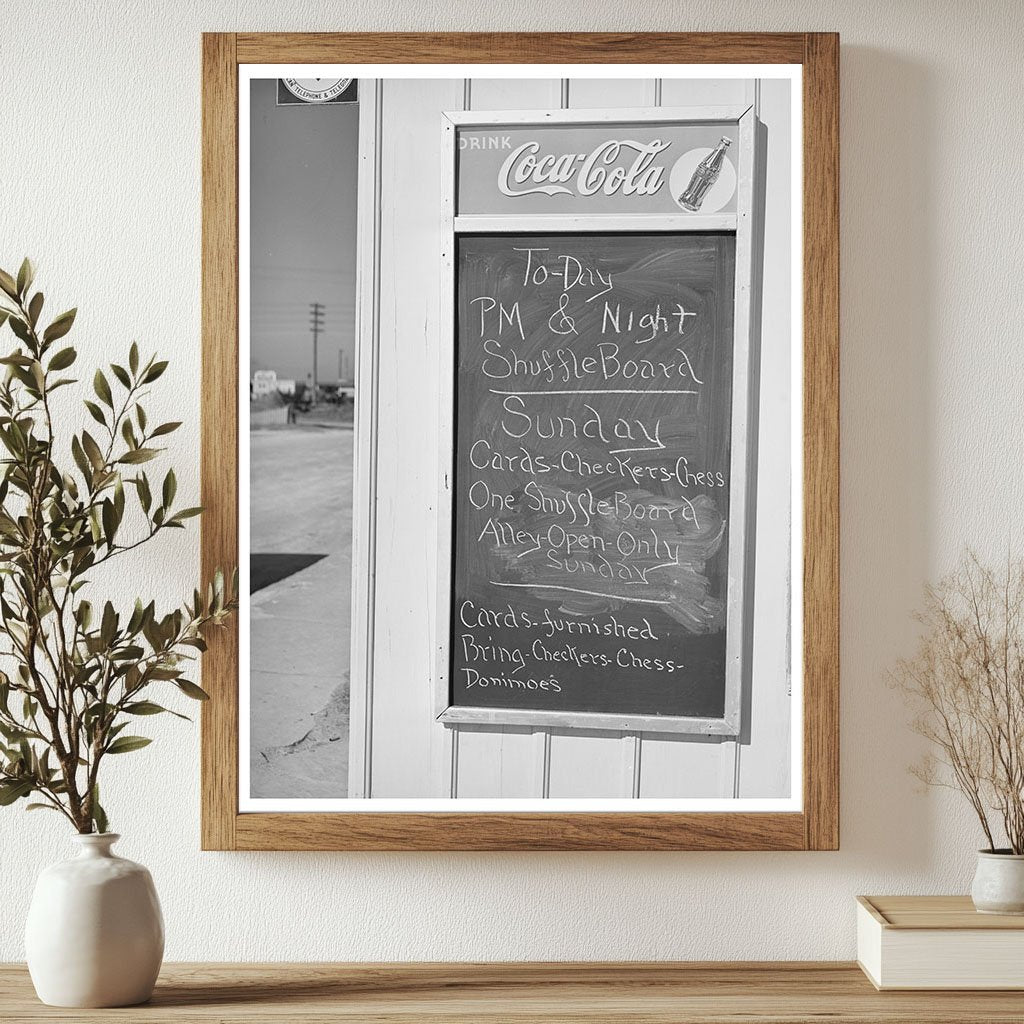 TELEPHONE & TELEG
DRINK
Coca-Cola
To-Day
PM & Night
ShuffleBoard
Sunday
Cards-Checkers-Chess
One Shuffle-Board
Alley-Open-Only
Sunday
Cards-furnished
Bring-Checkers-Chess-
Donimoe's